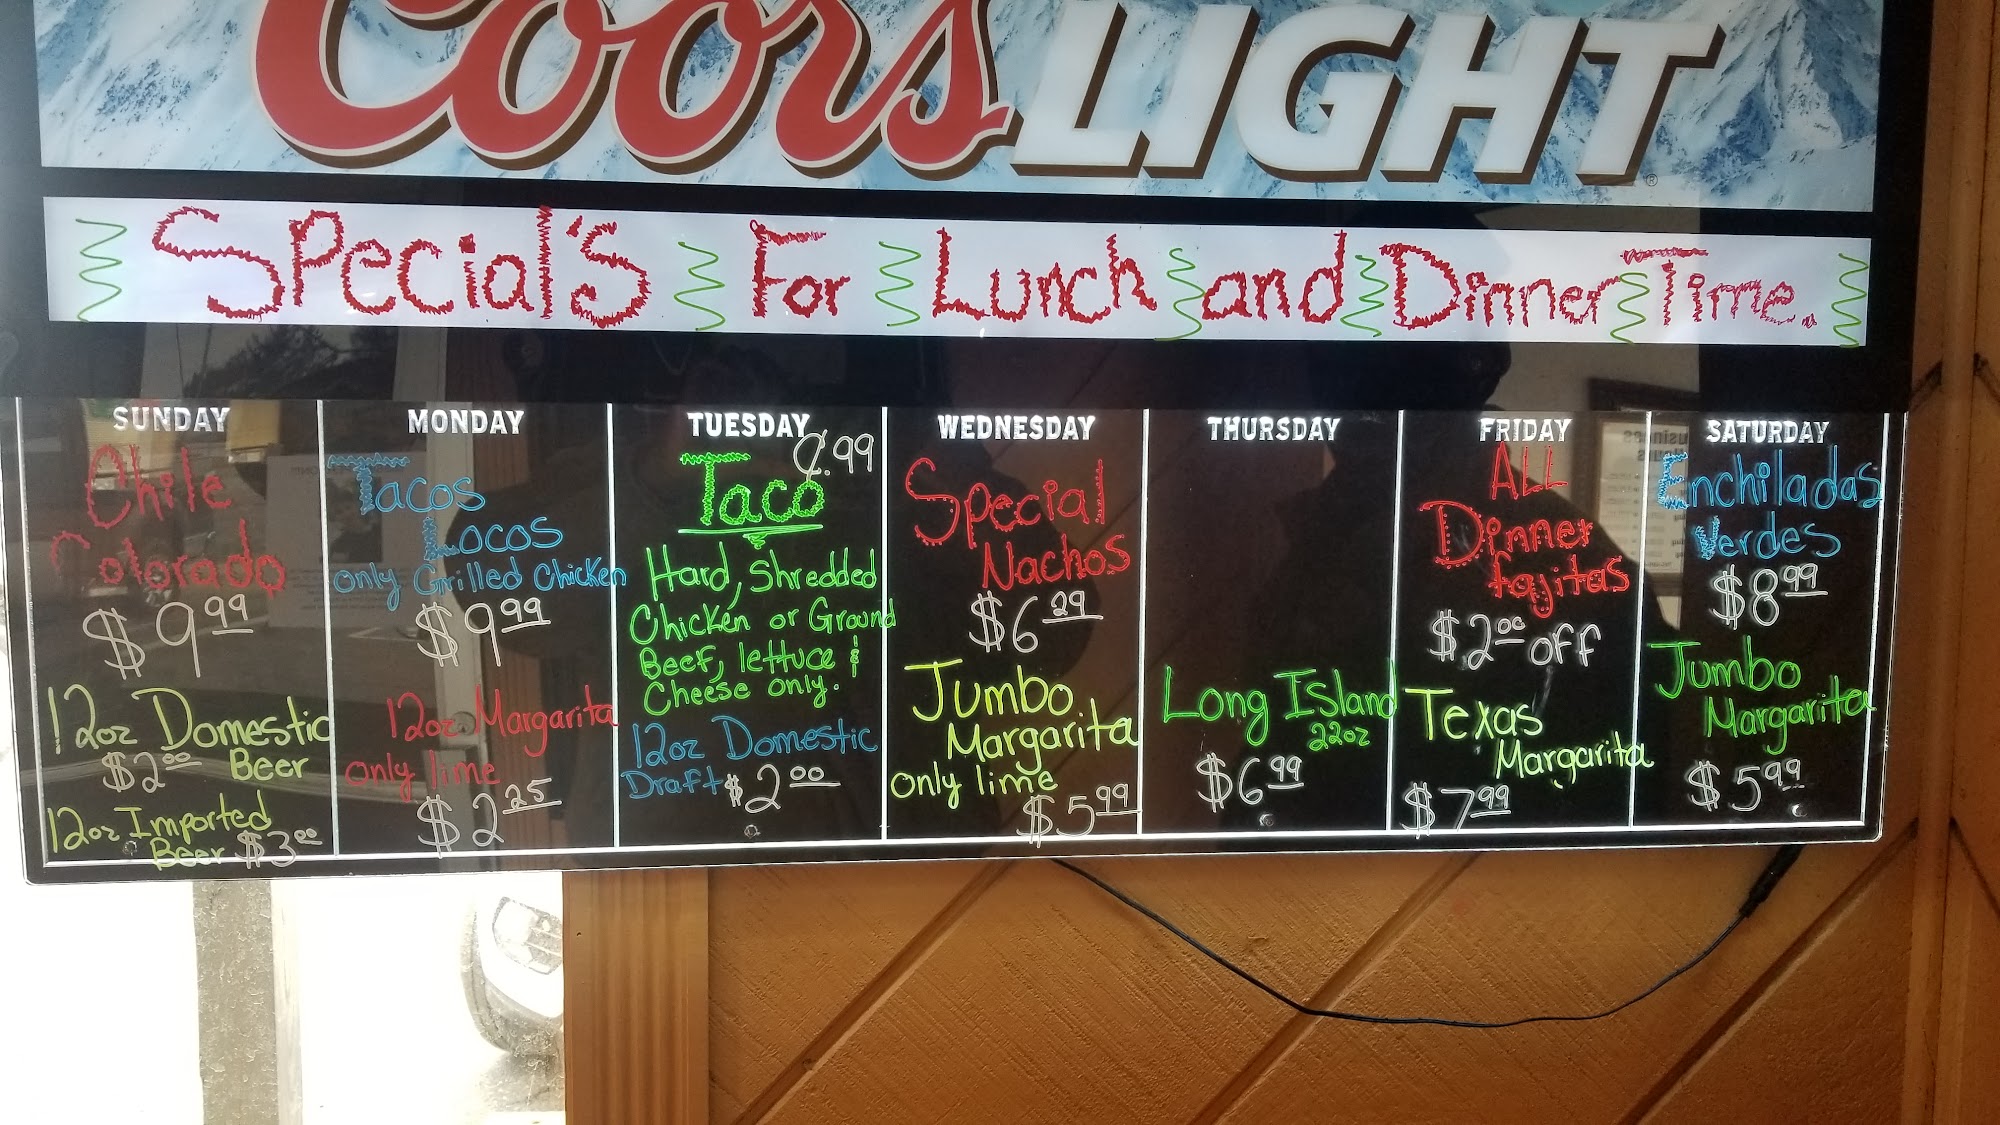 Coors LIGHT
Special's For Lunch and Dinner Time.
SUNDAY
Chile
Colorado
$9.99
12oz Domestic
$2.00 Beer
12oz Imported
Beer $3.00
MONDAY
Tacos
Locos
only Grilled Chicken
$9.99
12oz Margarita
only lime
$2.25
TUESDAY
¢.99
Taco
Hard, Shredded
Chicken or Ground
Beef, lettuce &
Cheese only.
12oz Domestic
Draft $2.00
WEDNESDAY
Special
Nachos
$6.29
Jumbo
Margarita
only lime
$5.99
THURSDAY
Long Island
22oz
$6.99
FRIDAY
ALL
Dinner
fajitas
$2.00 off
Texas
Margarita
$7.99
SATURDAY
Enchiladas
Verdes
$8.99
Jumbo
Margarita
$5.99